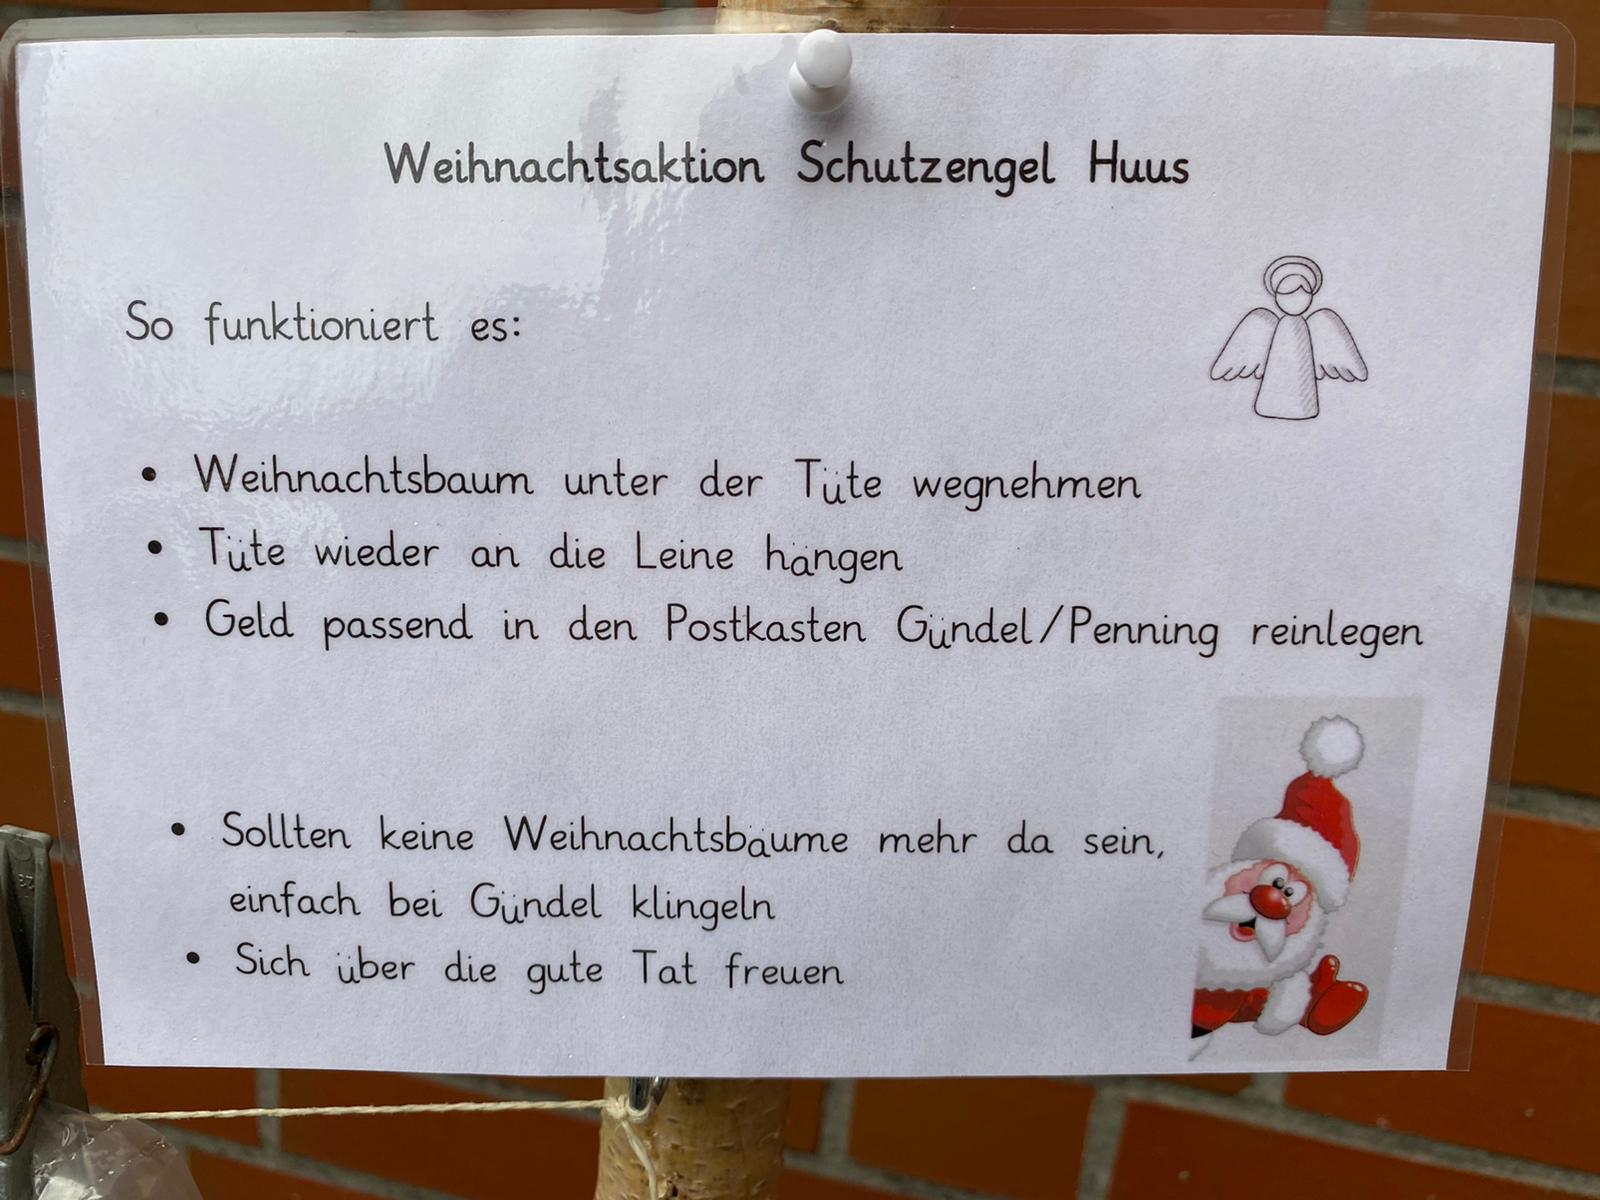 Weihnachtsaktion Schutzengel Huus
So funktioniert es:
• Weihnachtsbaum unter der Tüte wegnehmen
• Tüte wieder an die Leine hängen
• Geld passend in den Postkasten Gündel/Penning reinlegen
• Sollten keine Weihnachtsbäume mehr da sein,
einfach bei Gündel klingeln
• Sich über die gute Tat freuen